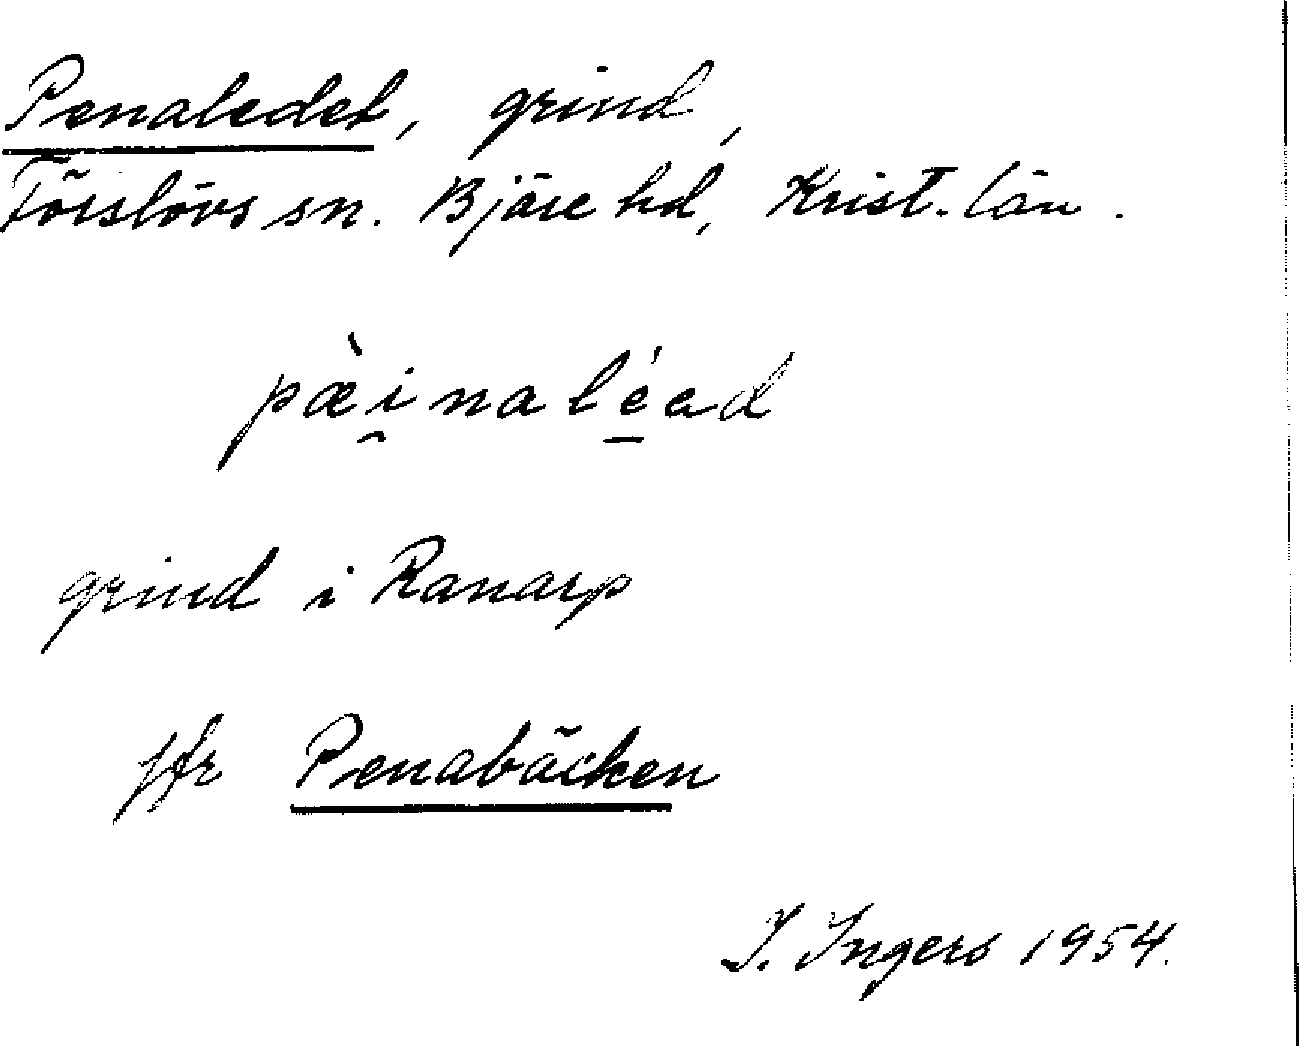 Penaledet, grind,
Förslövs sn. Bjäre hd, Krist. län.
pæ̀i̯naléad
grind i Ranarp
jfr Penabäcken
I. Ingers 1954.